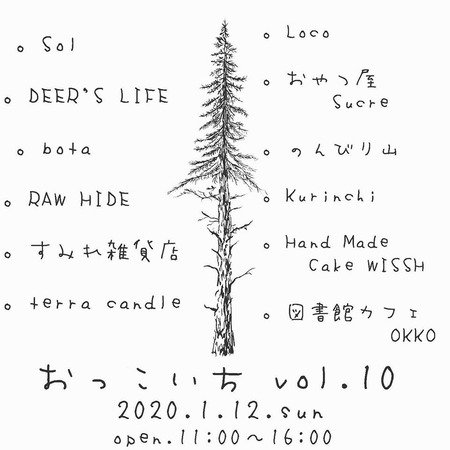 Sol
DEER'S LIFE
bota
RAW HIDE
すみれ雑貨店
terra candle
Loco
おやつ屋
Sucre
のんびり山
Kurinchi
Hand Made
Cake WISSH
図書館カフェ
OKKO
おっこいち vol.10
2020.1.12.sun
open.11:00～16:00